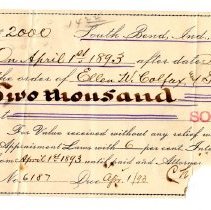 1422
$2000 South Bend, Ind.
On April 1st 1893 after date
the order of Ellen W. Colfax,
Two thousand
SO
For Value received without any relief
Appraisement Laws with 6 per cent. Int
from April 1st 1893 until paid and Attorney
No. 6187 Due Apr. 1/93